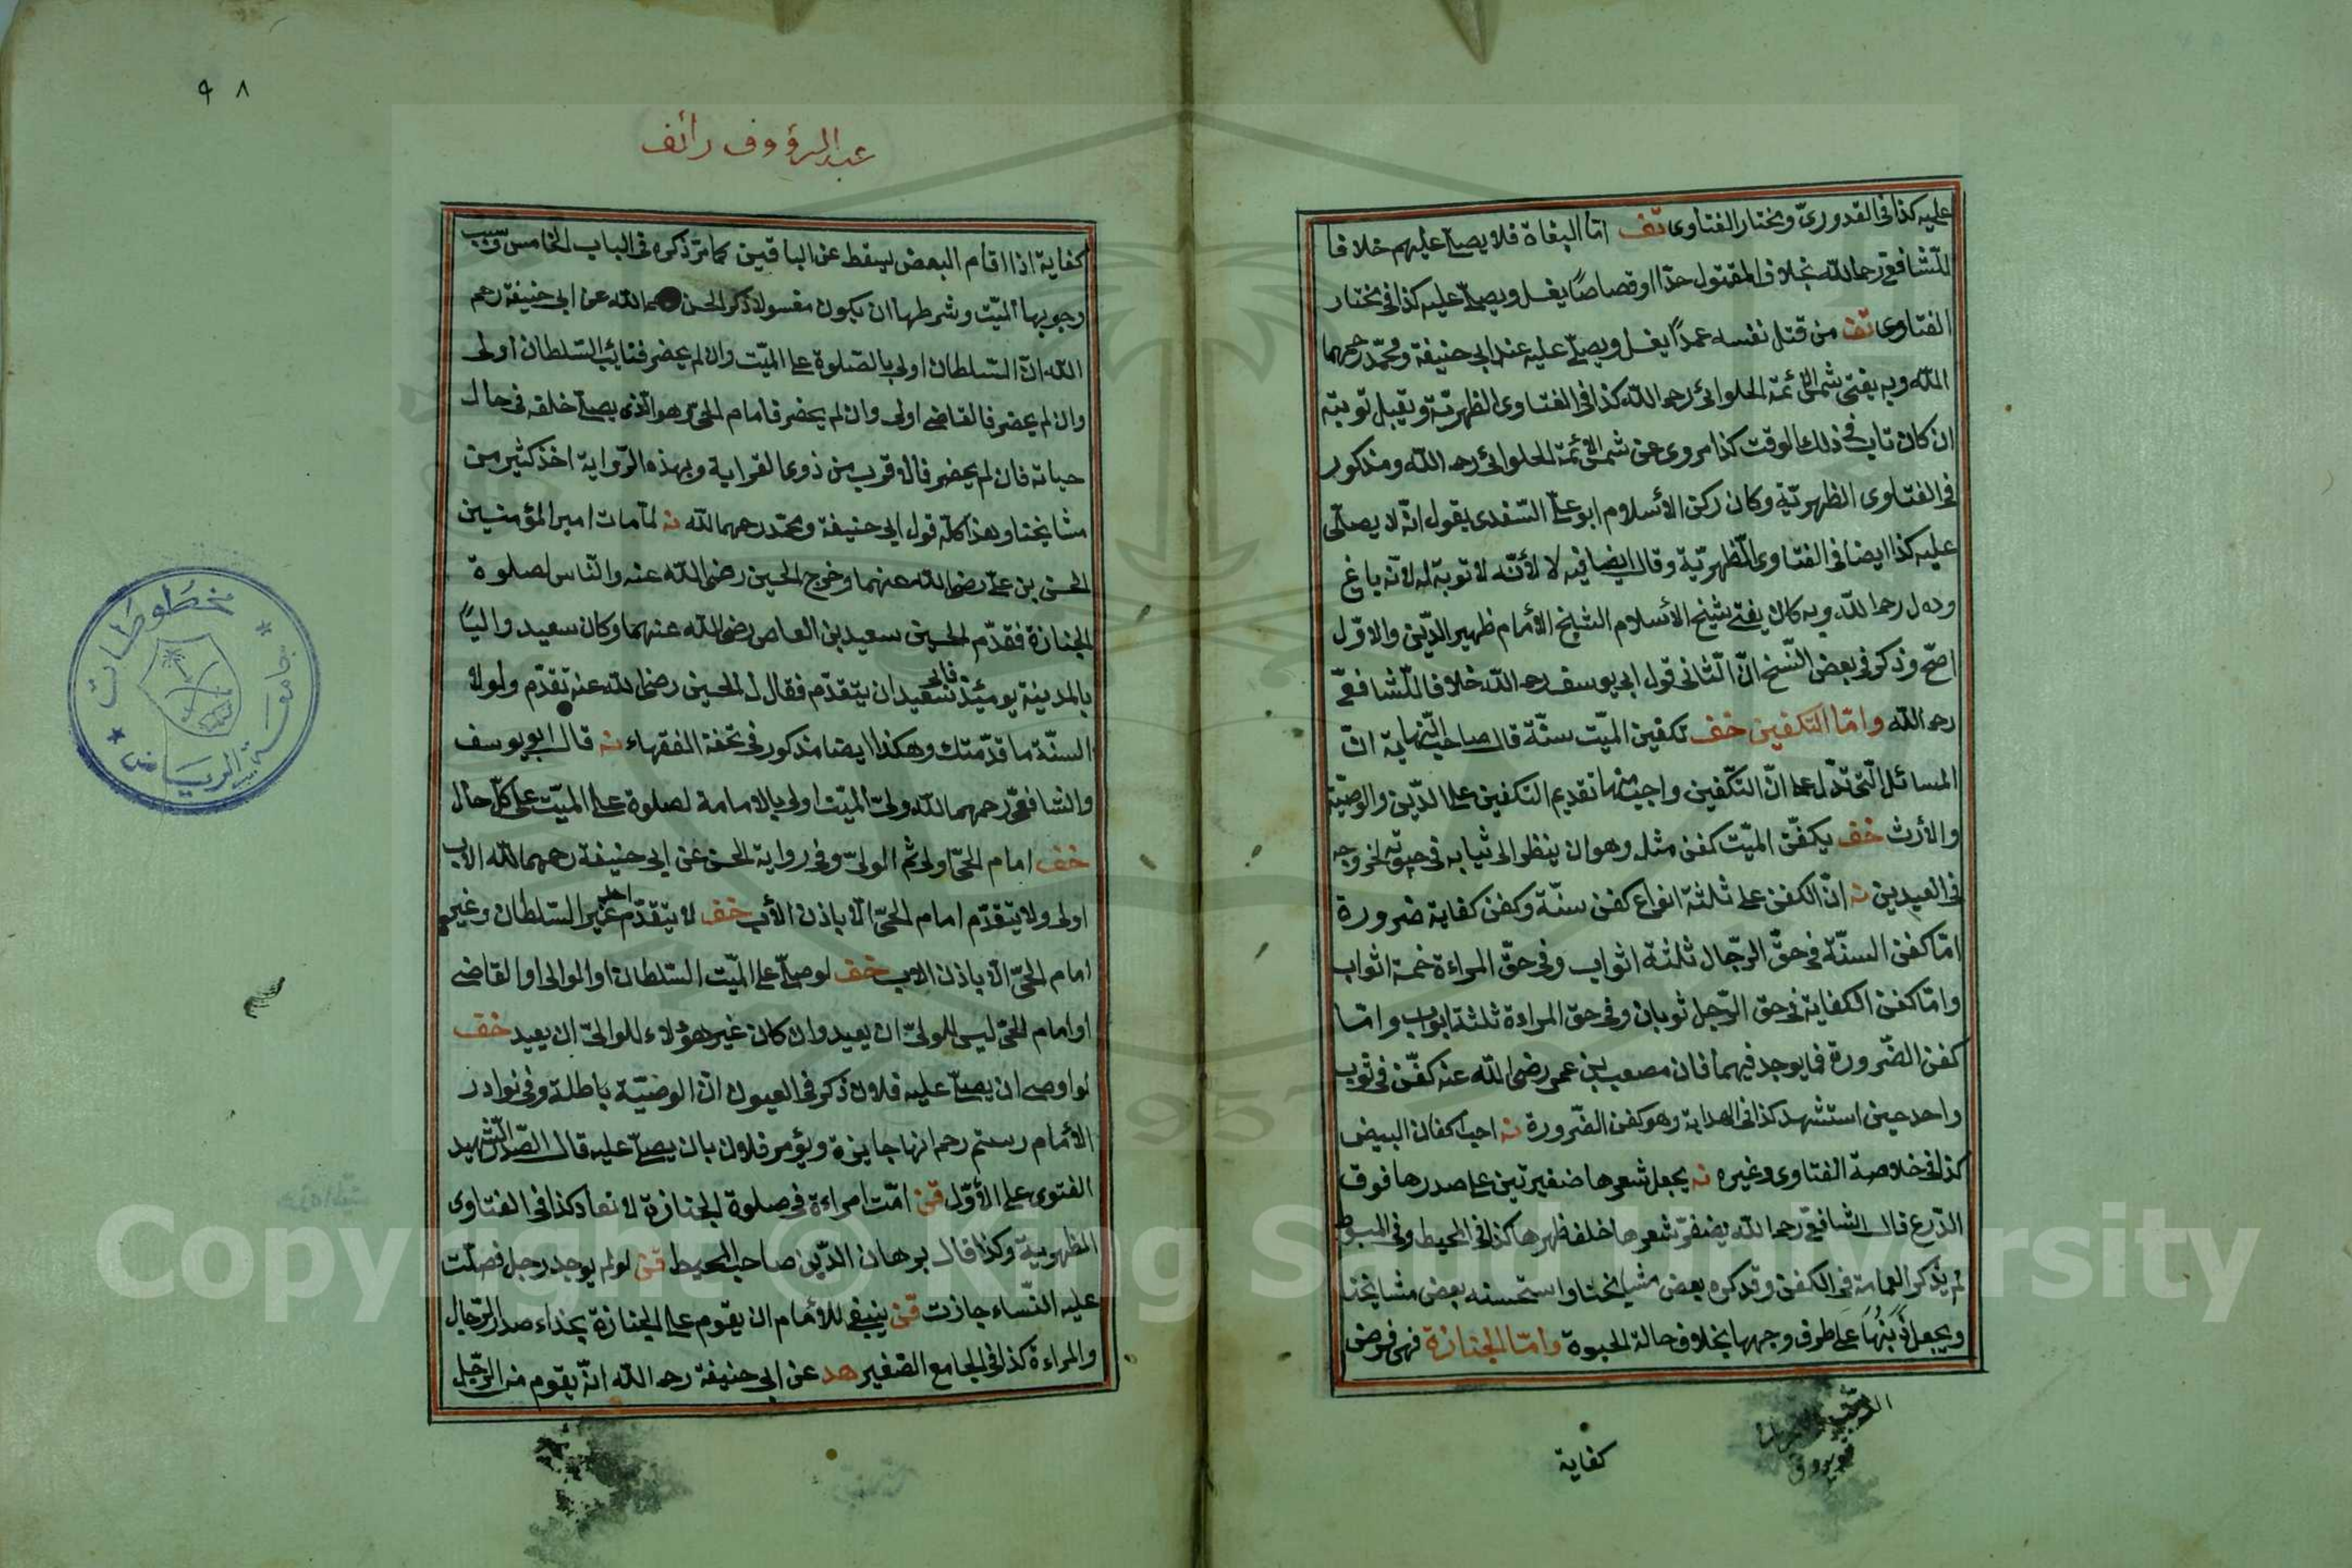 عليه كذا فى القدورىّ ومختار الفتاوى تف امّا البغاة فلا يصلّ عليهم خلافا
للشّافعىّ رحمه اللّه بخلاف المقتول حدّا او قصاصًا يغسل ويصلّ عليه كذا فى مختار
الفتاوى تف من قتل نفسه عمدًا يغسل ويصلّ عليه عند ابى حنيفة ومحمّد رحمهما
اللّه وبه يفتى شمس الأئمّة الحلوانىّ رحمه اللّه كذا فى الفتاوى الظهريّة وتقبل توبته
ان كان تاب فى ذلك الوقت كذا مروى عن شمس الأئمّة الحلوانىّ رحمه اللّه ومذكور
فى الفتاوى الظهريّة وكان ركن الأسلام ابو علىّ السّغدى يقول انّه لا يصلّى
عليه كذا ايضا فى الفتاوى الظهريّة وقال ايضا فيه لا لأنّه لا توبة له لانّه باغ
رحمه اللّه وبه كان يفتى شيخ الأسلام الشيخ الأمام ظهير الدّين والاوّل
اصحّ وذكر فى بعض النّسخ انّ الثّانى قول ابى يوسف رحمه اللّه خلافا للشّافعىّ
رحمه اللّه وامّا التكفين خف تكفين الميّت سنّة قال صاحب النّهاية انّ
المسائل الّتى تدّل على انّ التّكفين واجب منها تقديم التكفين على الدّين والوصيّة
والأرث خف يكفّن الميّت كفن مثله وهو ان ينظر الى ثيابه فى حيوته لخروجه
فى العيدين نه انّ الكفن على ثلثة انواع كفن سنّة وكفن كفاية ضرورة
امّا كفن السنّة فى حقّ الرّجال ثلثة اثواب وفى حقّ المراءة خمسة اثواب
وامّا كفن الكفاية فى حق الرّجل ثوبان وفى حق المراءة ثلثة اثواب وامّا
كفن الضّرورة فما يوجد فيهما فان مصعب بن عمر رضى اللّه عنه كفّن فى ثوب
واحد حين استشهد كذا فى الهداية وهو كفن الضّرورة نه احب اكفان البيض
كذا فى خلاصة الفتاوى وغيره نه يجعل شعرها ضفيرتين على صدرها فوق
الدّرع قال الشافعىّ رحمه اللّه يضفر شعرها خلف ظهرها كذا فى المحيط وفى المبسوط
لم يذكر العمامة فى الكفن وقد كره بعض مشايخنا واستحسنه بعض مشايخنا
ويجعل ذَنَبَهَا على طرف وجهها بخلاف حالة الحيوة وامّا الجنازة فهى فرض
كفاية
٩٨
عبد الرؤوف رائف
كفاية اذا اقام البعض يسقط عن الباقين كما مرّ ذكره فى الباب الخامس وسبب
وجوبها الميّت وشرطها ان يكون مغسولا ذكر الحسن رحمهما اللّه عن ابى حنيفة رحمه
اللّه انّ السّلطان اولى بالصّلوة على الميّت وان لم يحضر فنائب السّلطان اولى
وان لم يحضر فالقاضى اولى وان لم يحضر فامام الحىّ وهو الّذى يصلّ خلفه فى حال
حياته فان لم يحضر فالاقرب من ذوى القرابة وبهذه الرّواية اخذ كثير من
مشايخنا وهذا كلّه قول ابى حنيفة ومحمّد رحمهما اللّه نه لمّا مات امير المؤمنين
الحسن بن على رضى اللّه عنهما وخرج الحسين رضى اللّه عنه والنّاس لصلوة
الجنازة فقدّم الحسين سعيد بن العاص رضى اللّه عنهما وكان سعيد واليًا
بالمدينة يومئذ فابى سعيد ان يتقدّم فقال له الحسين رضى اللّه عنه تقدّم ولولا
السنّة ما قدّمتك وهكذا ايضا مذكور فى تحفة الفقهاء نه قال ابو يوسف
والشافعىّ رحمهما اللّه ولىّ الميّت اولى بالامامة لصلوة على الميّت على كلّ حال
خف امام الحىّ اولى ثم الولىّ وفى رواية الحسن عن ابى حنيفة رحمهما اللّه الاب
اولى ولا يتقدّم امام الحىّ الّا باذن الأب خف لا يتقدّم احد غير السّلطان وغير
امام الحىّ الّا باذن الاب خف لو صلّ على الميّت السّلطان او الوالى او القاضى
او امام الحىّ ليس للولىّ ان يعيد وان كان غير هؤلاء للوالىّ ان يعيد خف
لو اوصى ان يصلّ عليه فلان ذكر فى العيون انّ الوصيّة باطلة وفى نوادر
الأمام رستم رحمه انها جايزة ويؤمر فلان بان يصلّ عليه قال الصّدر الشّهيد
الفتوى على الأوّل قن امّت امراءة فى صلوة الجنازة لا تعاد كذا فى الفتاوى
الظهرية وكذا قال برهان الدّين صاحب المحيط قن لو لم يوجد رجل فصلّت
عليه النّساء جازت قن ينبغى للأمام ان يقوم على الجنازة بحذاء صدر الرّجال
والمراءة كذا فى الجامع الصّغير هد عن ابى حنيفة رحمه اللّه انّه يقوم من الرّجل
مخطوطات
جامعة الرياض
1957
Copyright © King Saud University